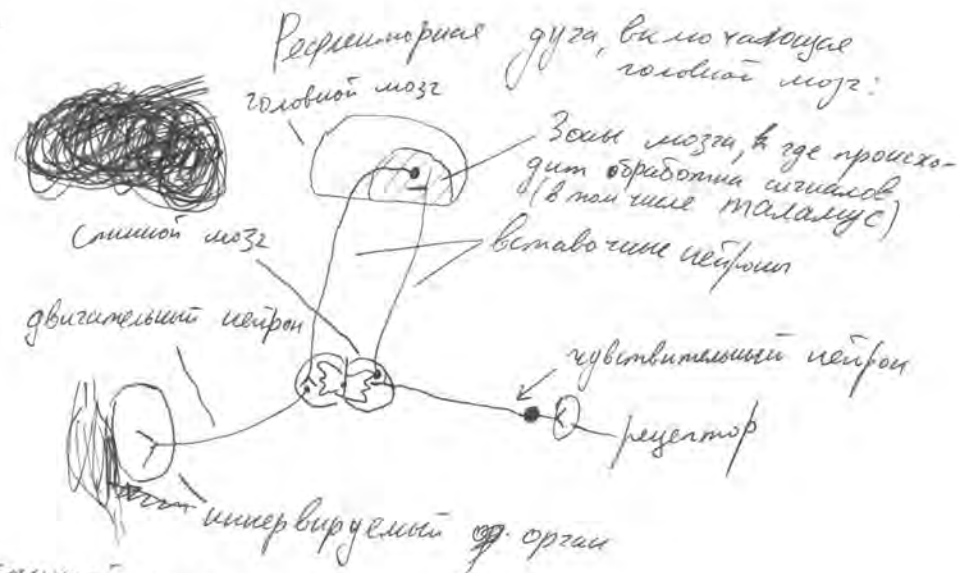 Рефлекторная дуга, включающая
головной мозг:
головной мозг
Зоны мозга, где происхо-
дит обработка сигналов
(в том числе таламус)
спинной мозг
вставочные нейроны
двигательный нейрон
чувствительный нейрон
рецептор
иннервируемый орган